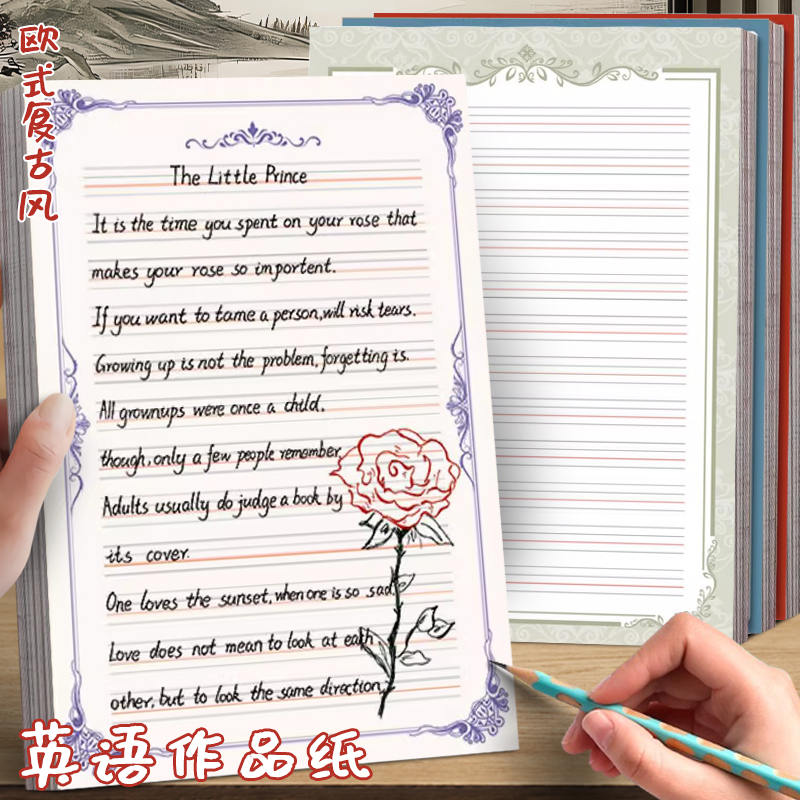 欧式复古风
The Little Prince
It is the time you spent on your rose that
makes your rose so importent.
If you want to tame a person,will risk tears.
Growing up is not the problem,forgetting is.
All grownups were once a child.
though,only a few people remember
Adults usually do judge a book by
its cover.
One loves the sunset,when one is so sad
Love does not mean to look at each
other,but to look the same direction
英语作品纸